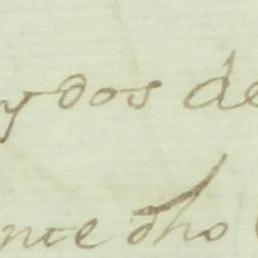 y dos de
nte dho